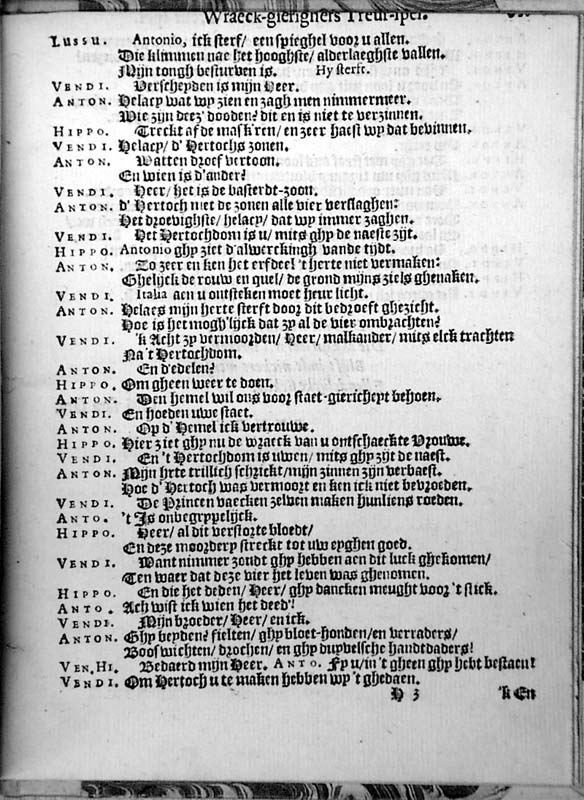 Wraeck-gierigners Treur-spel.
LUSSU. Antonio, ick sterf/ een spieghel voor u allen.
Die klimmen nae het hooghste/ alderlaeghste vallen.
Mijn tongh besturven is. Hy sterft.
VENDI. Verscheyden is mijn Heer.
ANTON. Helacy wat wy zien en zagh men nimmermeer.
Wie zijn deez' dooden? dit en is niet te verzinnen.
HIPPO. Treckt af de mask'ren/ en zeer haest wy dat bevinnen.
VENDI. Helacy/ d' Hertochs zonen.
ANTON. Watten droef vertoon.
En wien is d'ander?
VENDI. Heer/ het is de basterdt-zoon.
ANTON. d' Hertoch met de zonen alle vier verslaghen:
Het droevighste/ helacy/ dat wy immer zaghen.
VENDI. Het Hertochdom is u/ mits ghy de naeste zijt.
HIPPO. Antonio ghy ziet d'alwerckingh vande tijdt.
ANTON. Zo zeer en ken het erfdeel 't herte niet vermaken:
Ghelijck de rouw en quel/ de grond mijns ziels ghenaken.
VENDI. Italia aen u ontsteken moet heur licht.
ANTON. Helaes mijn herte sterft door dit bedroeft ghezicht.
Hoe is het mogh'lijck dat zy al de vier ombrachten?
VENDI. 'k Acht zy vermoorden/ Heer/ malkander/ mits elck trachten
Na 't Hertochdom.
ANTON. En d'edelen?
HIPPO. Om gheen weer te doen.
ANTON. Den hemel wil ons voor staet-giericheyt behoen.
VENDI. En hoeden uwe staet.
ANTON. Op d' Hemel ick vertrouwe.
HIPPO. Hier ziet ghy nu de wraeck van u ontschaeckte Vrouwe.
VENDI. En 't Hertochdom is uwen/ mits ghy zijt de naest.
ANTON. Mijn hrte trillich schrickt/mijn zinnen zijn verbaest.
Hoe d' Hertoch was vermoort en ken ick niet bevroeden.
VENDI. De Princen vaecken zelven maken hunliens roeden.
ANTO. 't Is onbegrypelijck.
HIPPO. Heer/ al dit verstorte bloedt/
En deze moordery streckt tot uw eyghen goed.
VENDI. Want nimmer zoudt ghy hebben aen dit luck ghekomen/
Ten waer dat deze vier het leven was ghenomen.
HIPPO. En die het deden/ Heer/ ghy dancken meught voor 't stick.
ANTO. Ach wist ick wien het deed'!
VENDI. Mijn broeder/ Heer/ en ick.
ANTON. Ghy beyden? fielten/ ghy bloet-honden/en verraders/
Boofwichten/ drochen/ en ghy duyvelsche handtdaders!
VEN. HI. Bedaerd mijn Heer. ANTO. Fy u/in 't gheen ghy hebt bestaen!
VENDI. Om Hertoch u te maken hebben wy 't ghedaen.
H 3 'k En